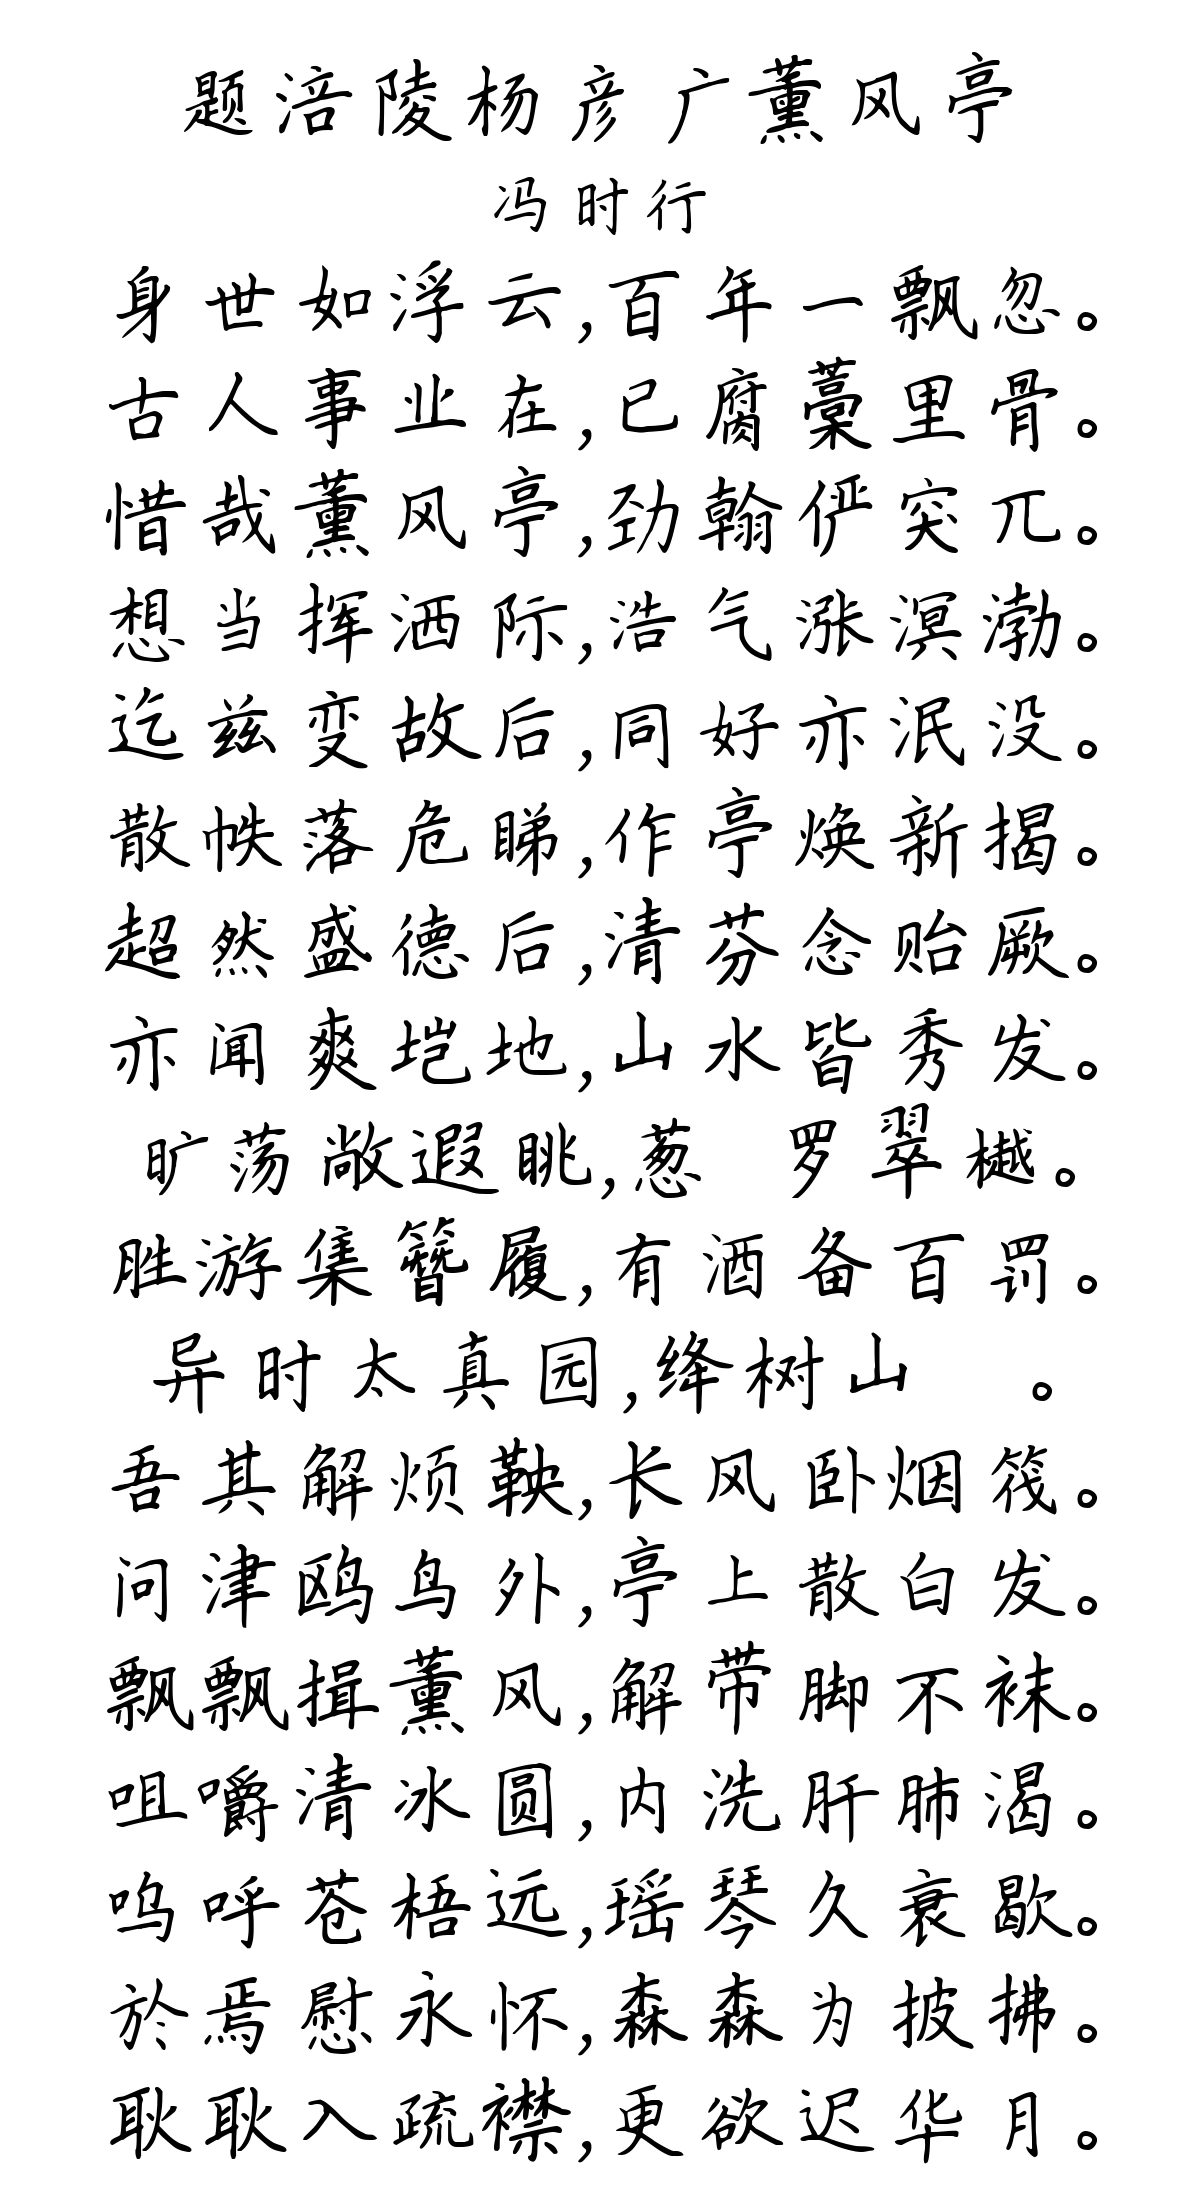 题涪陵杨彦广薰风亭
冯时行
身世如浮云,百年一飘忽。
古人事业在,已腐藁里骨。
惜哉薰风亭,劲翰俨突兀。
想当挥洒际,浩气涨溟渤。
迄兹变故后,同好亦泯没。
散帙落危睇,作亭焕新揭。
超然盛德后,清芬念贻厥。
亦闻爽垲地,山水皆秀发。
旷荡敞遐眺,葱 罗翠樾。
胜游集簪履,有酒备百罚。
异时太真园,绛树山 。
吾其解烦鞅,长风卧烟筏。
问津鸥鸟外,亭上散白发。
飘飘揖薰风,解带脚不袜。
咀嚼清冰圆,内洗肝肺渴。
呜呼苍梧远,瑶琴久衰歇。
於焉慰永怀,森森为披拂。
耿耿入疏襟,更欲迟华月。